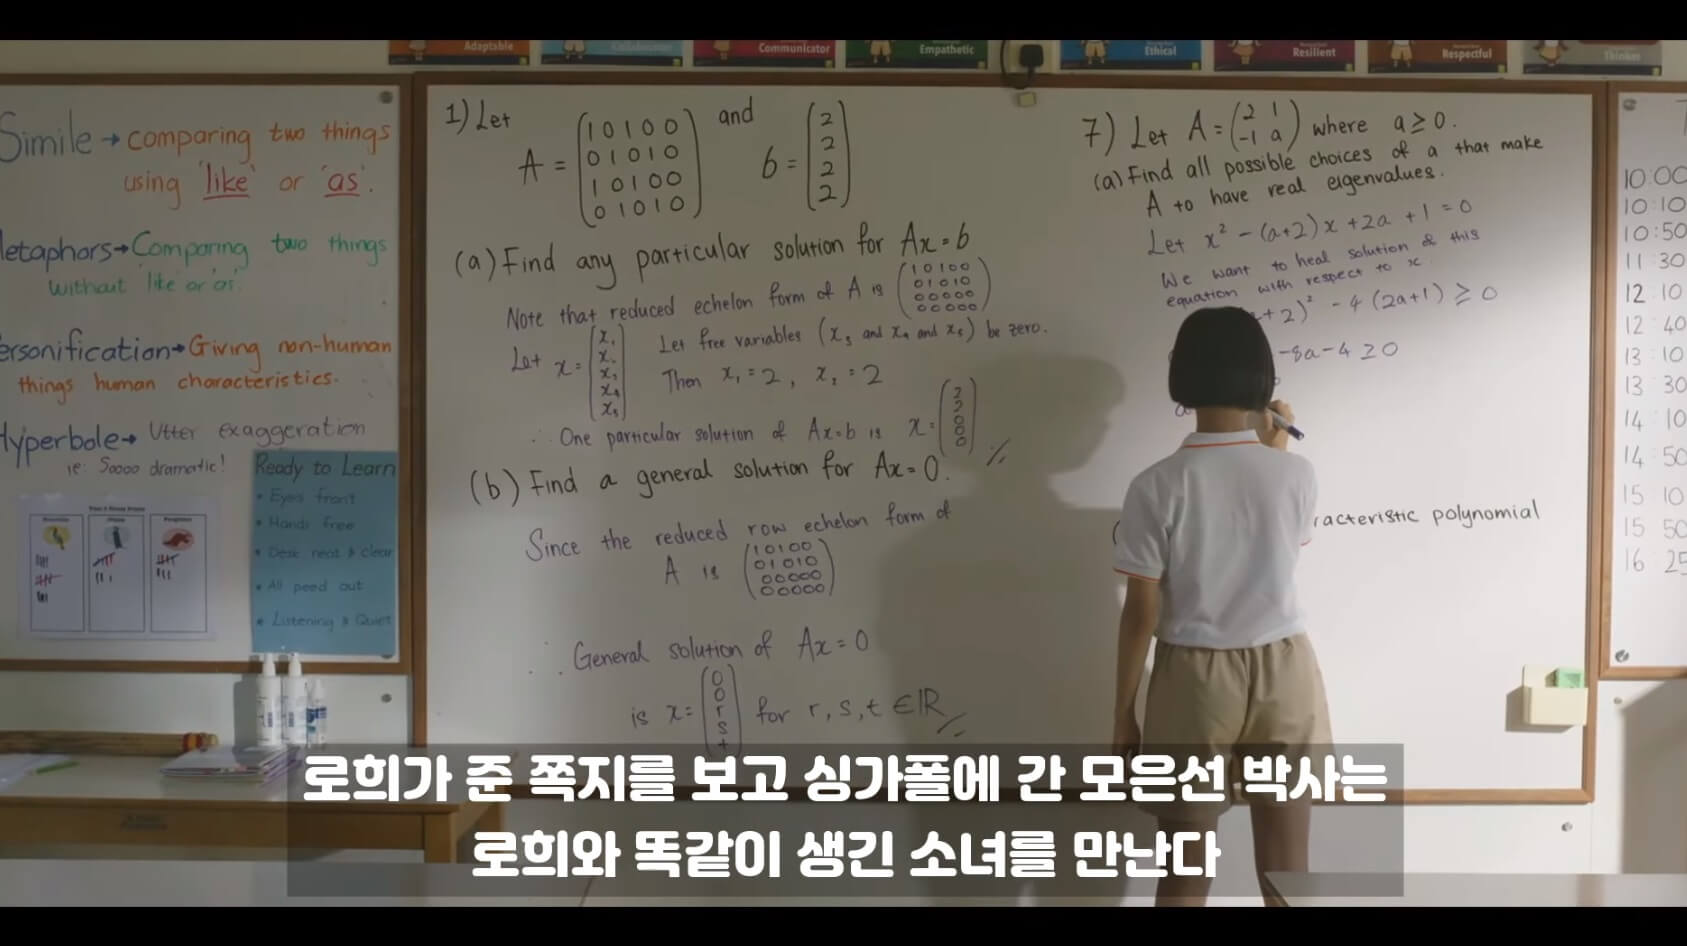 Adaptable
Collaborator
Communicator
Empathetic
Ethical
Resilient
Respectful
Thinker
Simile → comparing two things
using 'like' or 'as'.
etaphors → Comparing two things
without 'like' or 'as'.
ersonification → Giving non-human
things human characteristics.
Hyperbole → Utter exaggeration
ie: Soooo dramatic!
Ready to Learn
• Eyes front
• Hands free
• Desk neat & clear
• All peed out
• Listening & Quiet
1) Let
A = (1 0 1 0 0
0 1 0 1 0
1 0 1 0 0
0 1 0 1 0)
and
b = (2
2
2
2)
(a) Find any particular solution for Ax = b
Note that reduced echelon form of A is (1 0 1 0 0
0 1 0 1 0
0 0 0 0 0
0 0 0 0 0)
Let x =
Let free variables (x₃ and x₄ and x₅) be zero.
Then x₁ = 2, x₂ = 2
∴ One particular solution of Ax = b is x = (2
2
0
0
0)
(b) Find a general solution for Ax = 0.
Since the reduced row echelon form of
A is (1 0 1 0 0
0 1 0 1 0
0 0 0 0 0
0 0 0 0 0)
∴ General solution of Ax = 0
is x = (0
0
r
s
t) for r, s, t ∈ ℝ
7) Let A = (2 1
-1 a) where a ≥ 0.
(a) Find all possible choices of a that make
A to have real eigenvalues.
Let x² - (a+2)x + 2a + 1 = 0
We want to heal solution of this
equation with respect to x.
+2)² - 4(2a+1) ≥ 0
-8a-4 ≥ 0
a
racteristic polynomial
10:00
10:10
10:50
11:30
12:10
12:40
13:10
13:30
14:10
14:50
15 10
15 50
16 25
로희가 준 쪽지를 보고 싱가폴에 간 모은선 박사는
로희와 똑같이 생긴 소녀를 만난다